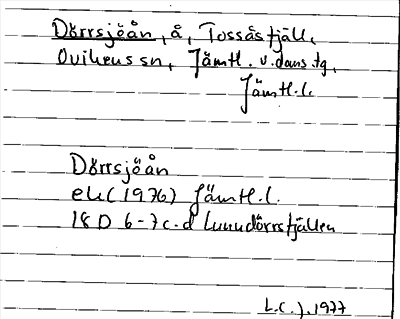 Dörrsjöån, å, Tossåsfjäll,
Ovikens sn, Jämtl. v. doms.tg,
Jämtl.l.
Dörrsjöån
ek (1976) Jämtl.l.
18 D 6-7 c-d Lunndörrsfjällen
L.C.J. 1977